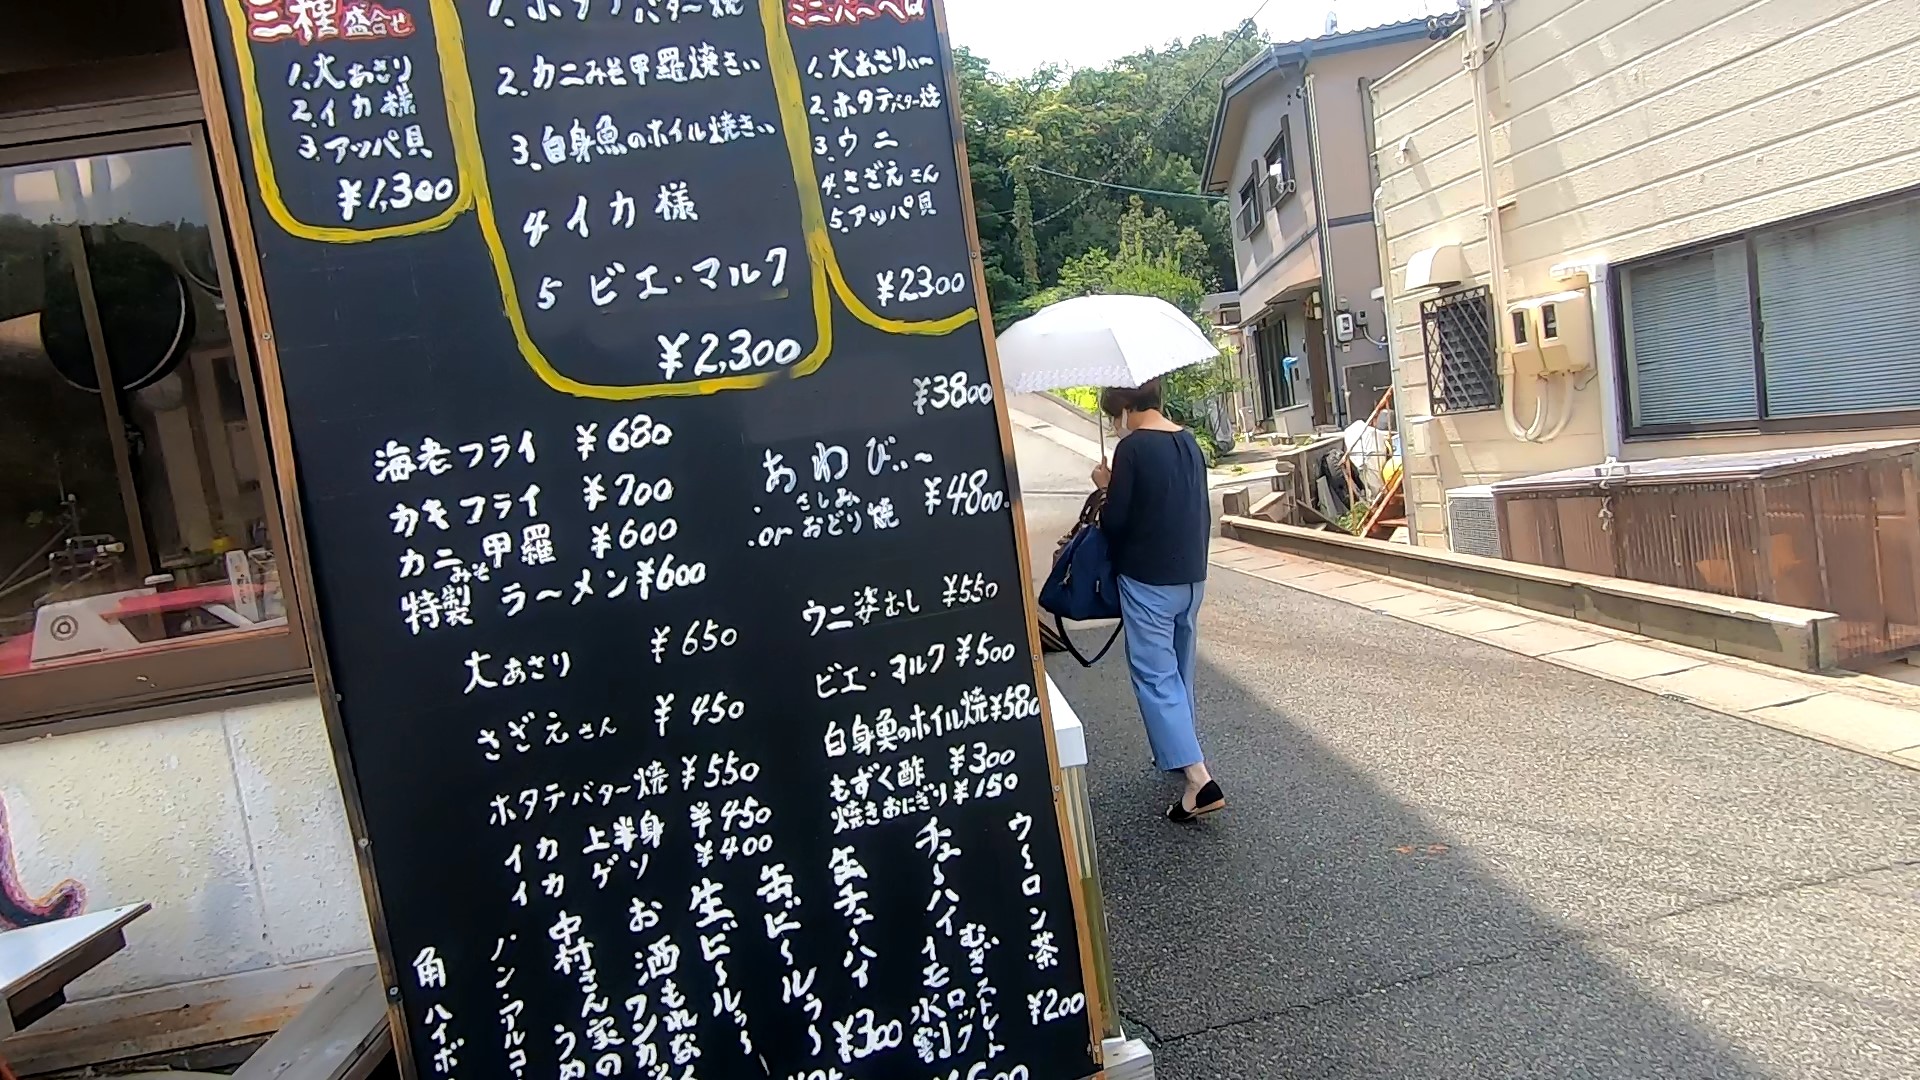 三種盛合せ
1.大あさり
2.イカ様
3.アッパ貝
¥1,300
1.ホタテバター焼
2.カニみそ甲羅焼きぃ
3.白身魚のホイル焼きぃ
4 イカ様
5 ビエ・マルク
¥2,300
1.大あさりぃ〜
2.ホタテバター焼
3.ウニ
4.さざえさん
5.アッパ貝
¥2300
¥3800
海老フライ ¥680
カキフライ ¥700
カニみそ甲羅 ¥600
特製ラーメン ¥600
大あさり ¥650
さざえさん ¥450
ホタテバター焼 ¥550
イカ 上半身 ¥450
イカ ゲソ ¥400
あわびぃ〜
・さしみ
.or おどり焼 ¥4800
ウニ姿むし ¥550
ビエ・マルク ¥500
白身魚のホイル焼 ¥580
もずく酢 ¥300
焼きおにぎり ¥150
ウ〜ロン茶 ¥200
チュ〜ハイ
むぎ ストレート
イモ ロック
水割
缶チュ〜ハイ ¥300
缶ビ〜ルぅ〜
生ビ〜ルぅ〜
お酒
もれなく
ワンカ
中村さん家の
うめ
ノン・アルコー
角ハイボ